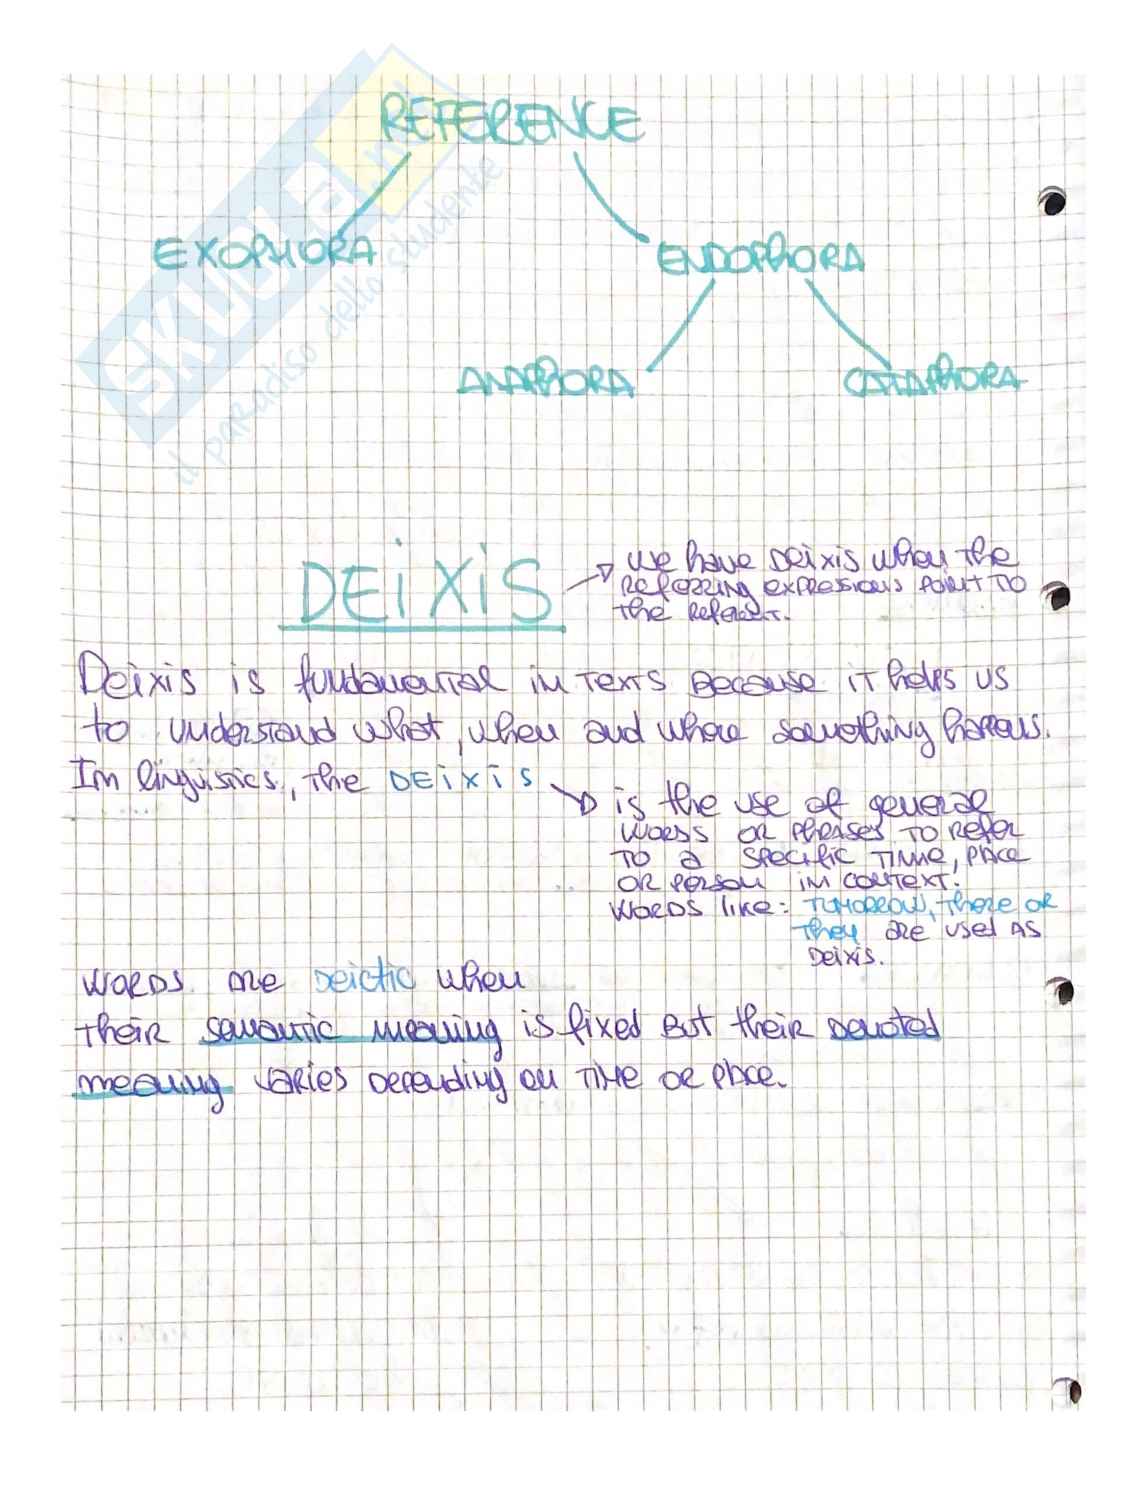 REFERENCE
EXOPHORA
ENDOPHORA
ANAPHORA
CATAPHORA
SKUOLA.net
il paradiso dello studente
DEiXiS
we have Deixis when the
Referring expressions point to
the Referent.
Deixis is fundamental in texts because it helps us
to understand what, when and where something happens.
In linguistics, the DEiXiS
is the use of general
words or phrases to refer
to a specific time, place
or person in context.
words like: TOMORROW, there or
they are used as
Deixis.
words are Deictic when
their semantic meaning is fixed but their denoted
meaning varies depending on time or place.